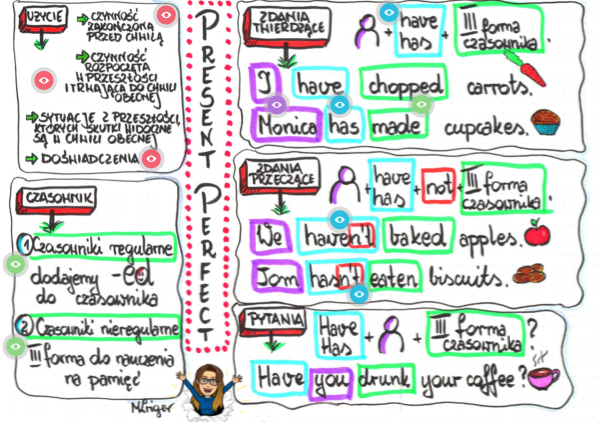 UŻYCIE
CZYNNOŚĆ
ZAKOŃCZONA
PRZED CHWILĄ
CZYNNOŚĆ
ROZPOCZĘTA
W PRZESZŁOŚCI
I TRWAJĄCA DO CHWILI
OBECNEJ
SYTUACJE Z PRZESZŁOŚCI,
KTÓRYCH SKUTKI WIDOCZNE
SĄ W CHWILI OBECNEJ
DOŚWIADCZENIA
CZASOWNIK
1 Czasowniki regularne
dodajemy -ed
do czasownika
2 Czasowniki nieregularne
III forma do nauczenia
na pamięć
PRESENT PERFECT
ZDANIA
TWIERDZĄCE
+ have
has + III forma
czasownika.
I have chopped carrots.
Monica has made cupcakes.
ZDANIA
PRZECZĄCE
+ have
has + not + III forma
czasownika.
We haven't baked apples.
Tom hasn't eaten biscuits.
PYTANIA
Have
Has + + III forma
czasownika ?
Have you drunk your coffee?